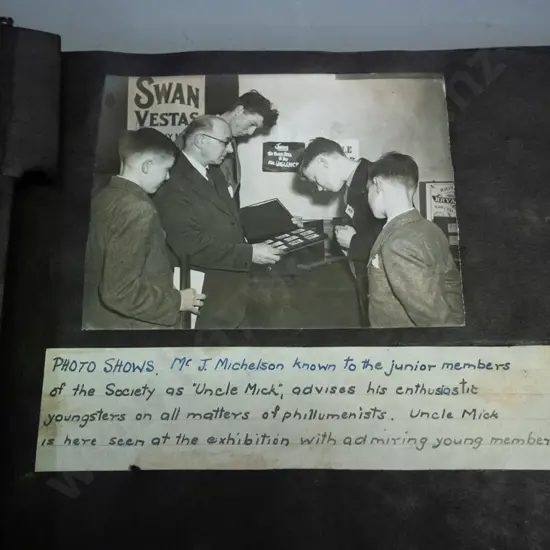 SWAN
VESTAS
PHOTO SHOWS. Mr J. Michelson known to the junior members
of the Society as "Uncle Mick", advises his enthusiastic
youngsters on all matters of phillumenists. Uncle Mick
is here seen at the exhibition with admiring young member